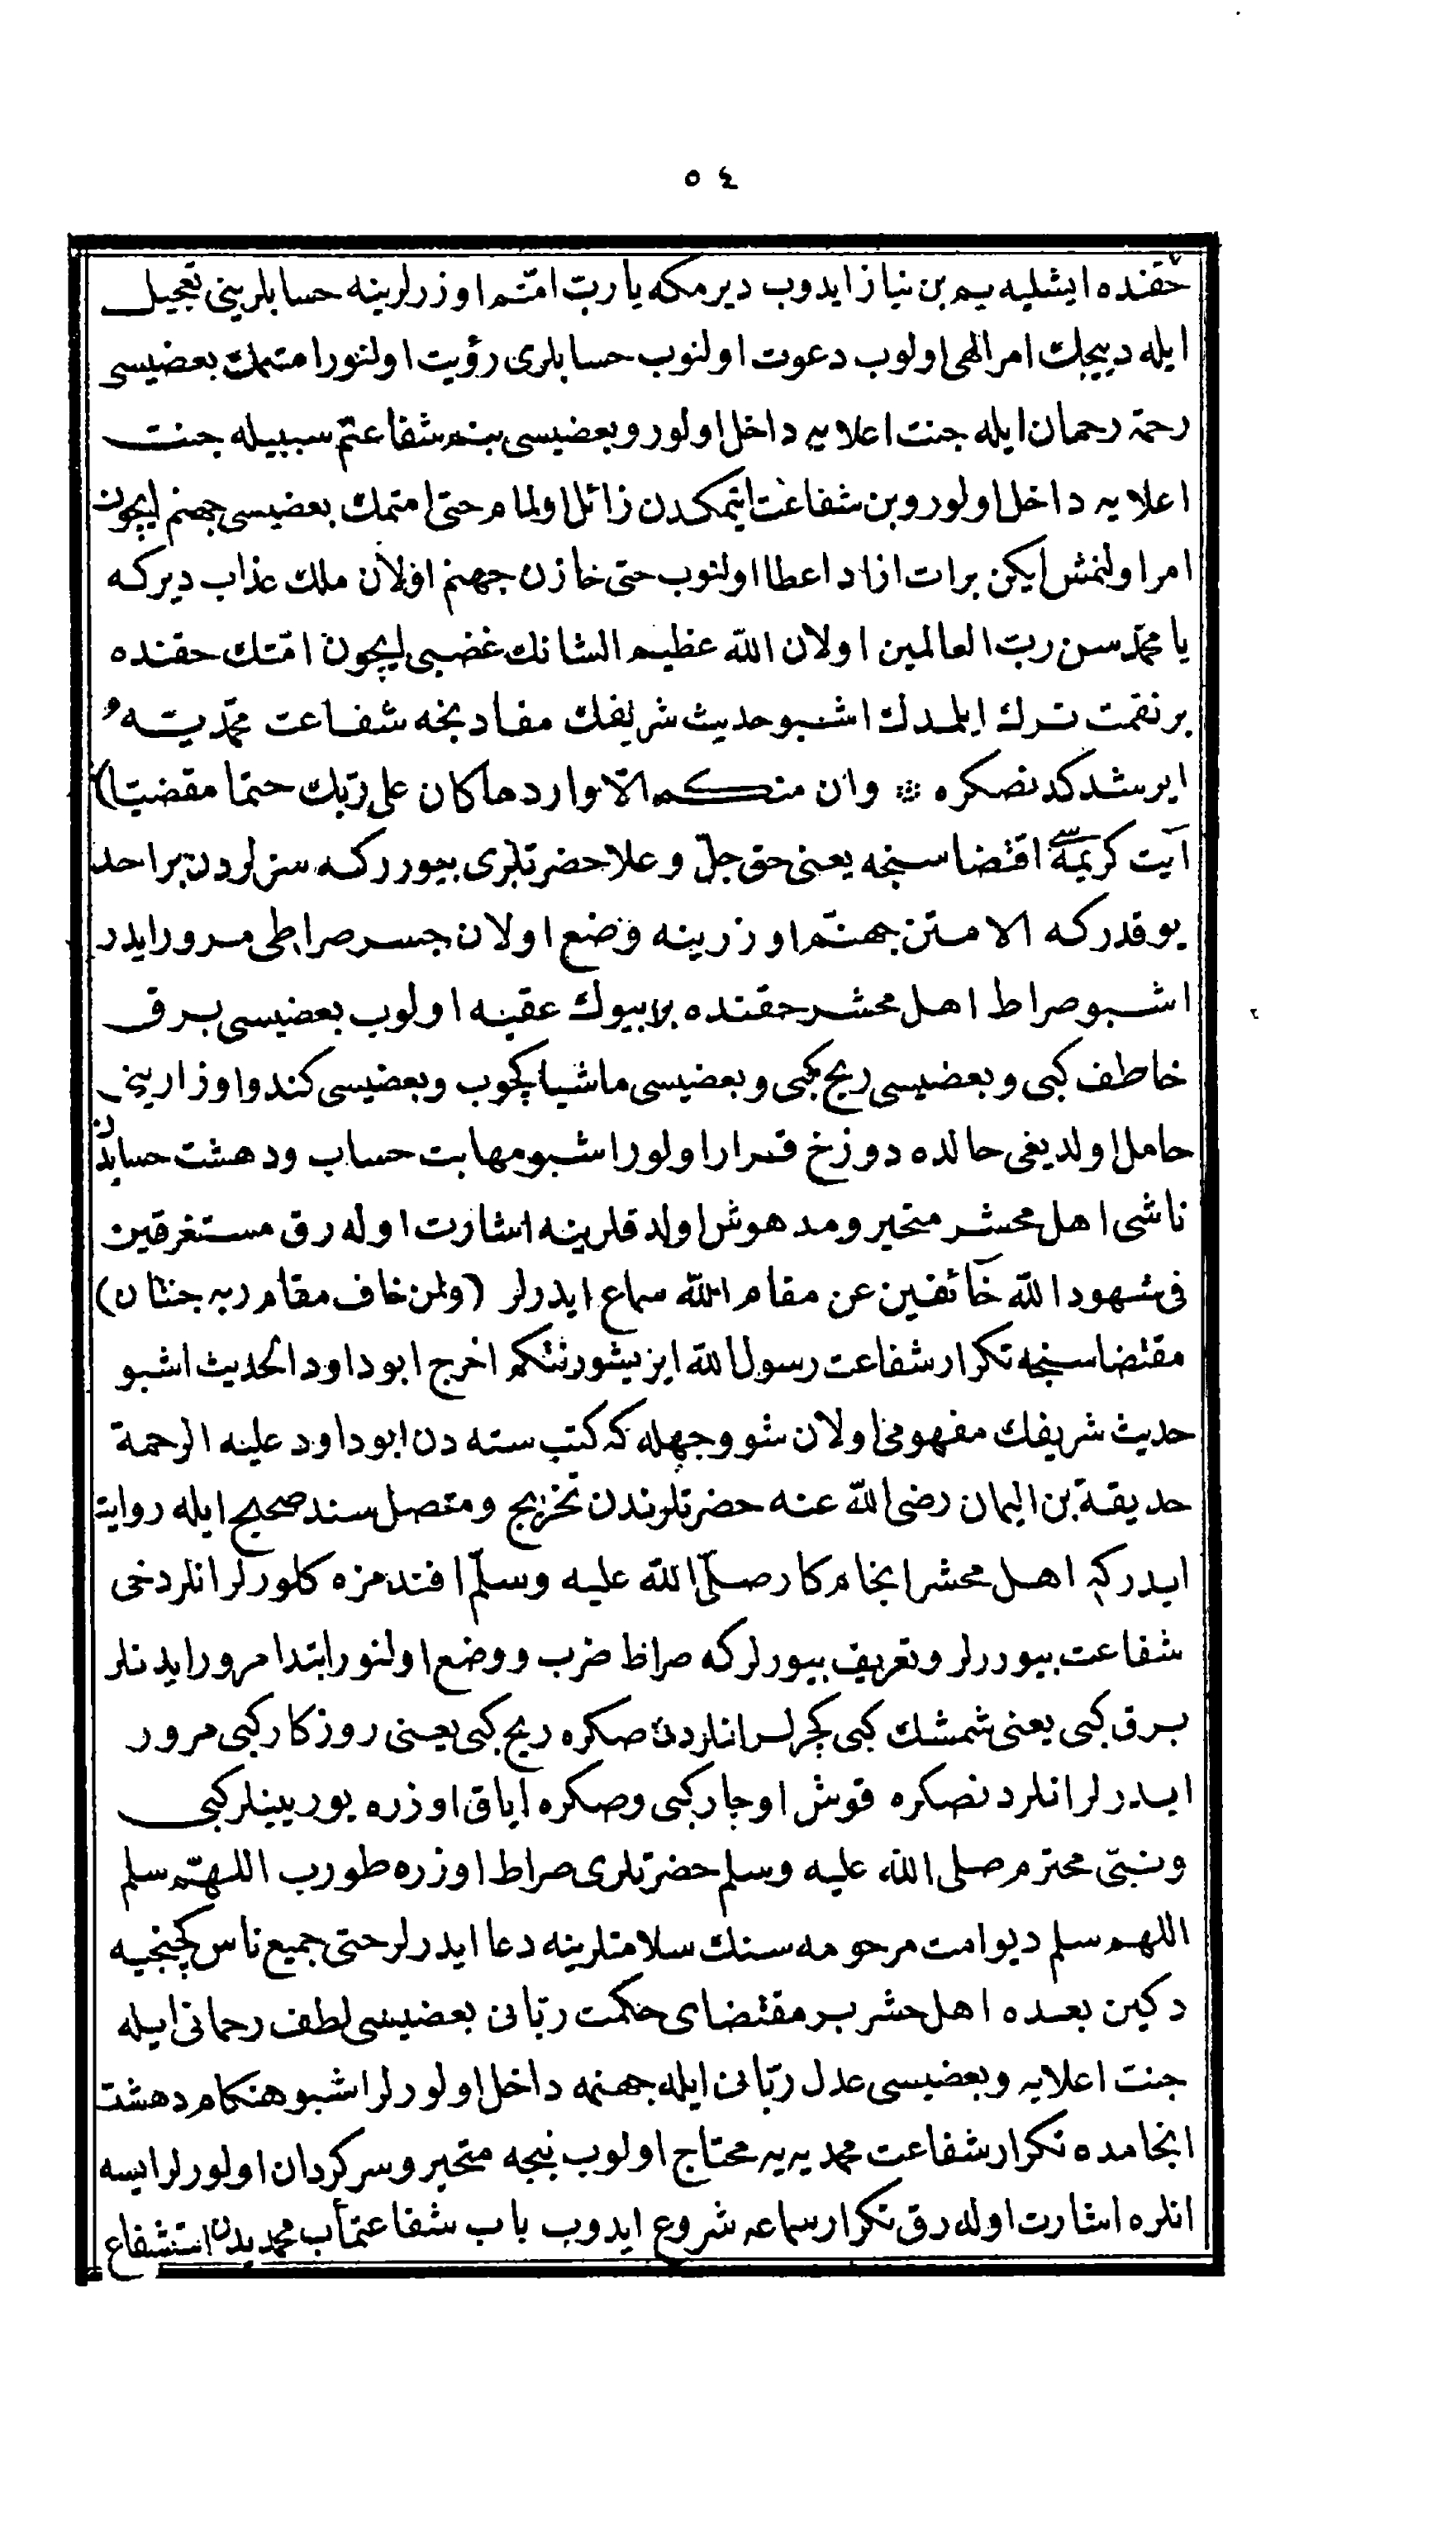 ٥٤
حقنده ايشليه يم بن نياز ايدوب ديرمكه يا ربّ امّتم اوزرلرينه حسابلريني تعجيل
ايله ديبجك امر الهى اولوب دعوت اولنوب حسابلرى رؤيت اولنور امتمك بعضيسى
رحمة رحمان ايله جنت اعلايه داخل اولور وبعضيسى بنم شفاعتم سببيله جنت
اعلايه داخل اولور وبن شفاعت ايتمكدن زائل اولمام حتى امتمك بعضيسى جهنم ايچون
امر اولنمش ايكن برات ازاد اعطا اولنوب حتى خازن جهنم اولان ملك عذاب ديركه
يا محمّد سن ربّ العالمين اولان الله عظيم الشانك غضبى ايچون امّتك حقنده
بر نقمت ترك ايلمدك اشبو حديث شريفك مفادنجه شفاعت محمّديّه
ايرشدكدنصكره ※ وان منكم الّا واردها كان على ربّك حتما مقضيّا)
آيت كريمه سى اقتضاسنجه يعنى حق جلّ وعلا حضرتلرى بيورركه سزلردن بر احد
يوقدركه الا متن جهنّم اوزرينه وضع اولان جسر صراطى مرور ايدر
اشبو صراط اهل محشر حقنده بر بيوك عقبه اولوب بعضيسى برق
خاطف كبى وبعضيسى ريح كبى وبعضيسى ماشيا كچوب وبعضيسى كندو اوزارينى
حامل اولديغى حالده دوزخ قرار اولور اشبو مهابت حساب ودهشت حسابدن
ناشى اهل محشر متحير ومدهوش اولدقلرينه اشارت اوله رق مستغرقين
فى شهود الله خآئفين عن مقام الله سماع ايدرلر (ولمن خاف مقام ربه جنتان)
مقتضاسنجه تكرار شفاعت رسول الله ايزيشور نتكم اخرج ابو داود الحديث اشبو
حديث شريفك مفهومى اولان شو وجهله كه كتب سته دن ابو داود عليه الرحمة
حديقة بن اليمان رضى الله عنه حضرتلرندن تخريج ومتصل سند صحيح ايله روايت
ايدركه اهل محشر انجام كار صلّى الله عليه وسلّم افندمزه كلورلر انلر دخى
شفاعت بيوررلر وتعريف بيورلركه صراط ضرب ووضع اولنور ابتدا مرور ايدنلر
برق كبى يعنى شمشك كبى كچرلر انلردن صكره ريح كبى يعنى روزكار كبى مرور
ايدرلر انلردنصكره قوش اوچار كبى وصكره اياق اوزره يوريينلر كبى
ونبىّ محترم صلى الله عليه وسلم حضرتلرى صراط اوزره طورب اللهمّ سلم
اللهم سلم ديو امت مرحومه سنك سلامتلرينه دعا ايدرلر حتى جميع ناس كچنجيه
دكين بعده اهل حشر بر مقتضاى حكمت ربّانى بعضيسى لطف رحمانى ايله
جنت اعلايه وبعضيسى عدل ربّانى ايله جهنمه داخل اولورلر اشبو هنكام دهشت
انجامده تكرار شفاعت محمديه يه محتاج اولوب نيجه متحير وسركردان اولورلر ايسه
انلره اشارت اوله رق تكرار سماعه شروع ايدوب باب شفاعتمأب محمديدن استشفاع